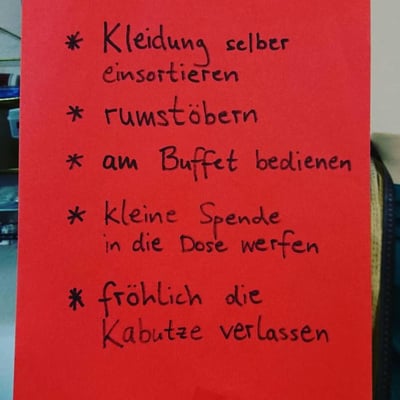 * Kleidung selber
einsortieren
* rumstöbern
* am Buffet bedienen
* kleine Spende
in die Dose werfen
* fröhlich die
Kabutze verlassen